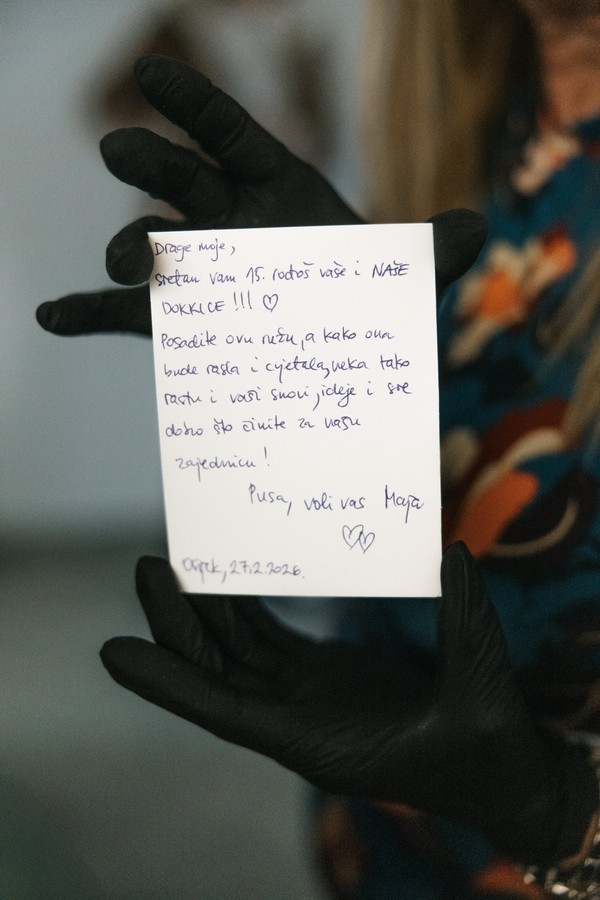 Drage moje,
sretan vam 15. rođoš vaše i NAŠE
DOKKICE !!! ♡
Posadite ovu ružu, a kako ona
bude rasla i cvjetala, neka tako
rastu i vaši snovi, ideje i sve
dobro što činite za našu
zajednicu!
Pusa, voli vas Maja
♡♡
Osijek, 27.2.2026.